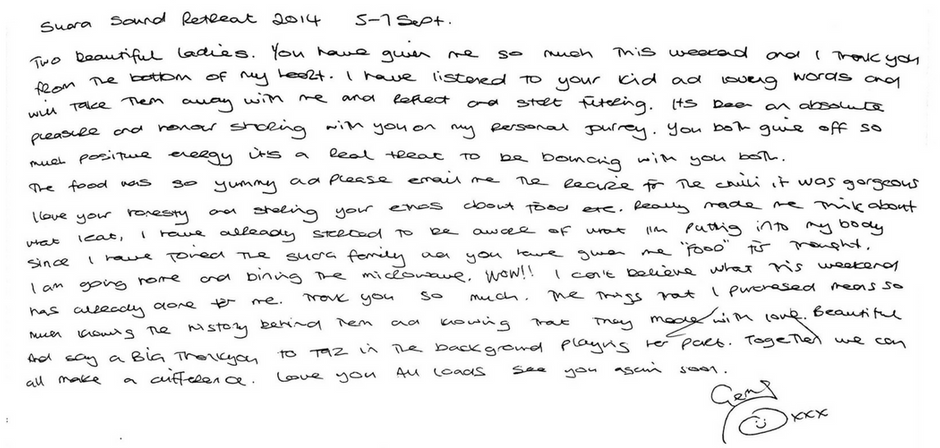 Suara Sound Retreat 2014 5-7 Sept.
Two beautiful ladies. You have given me so much this weekend and I thank you
from the bottom of my heart. I have listened to your kid ad loving words and
will take them away with me and reflect and start filtering. Its been an absolute
pleasure and honour sharing with you on my personal journey. You both give off so
much positive energy its a real treat to be bouncing with you both.
The food was so yummy ad please email me the recipe for the chilli it was gorgeous
I love your honesty ad sharing your about food etc. Really made me think about
what I eat, I have already started to be aware of what I'm putting into my body
since I have joined the suara family ad you have given me "FOOD" for thought.
I am going home and bining the microwave. WOW!! I can't believe what this weekend
has already done for me. Thank you so much. The things that I purchased means so
much knowing the history behind them ad knowing that they made with love. Beautiful
And say a Big Thankyou to Taz in the background playing her part. Together we can
all make a difference. Love you All loads see you again soon.
xxx